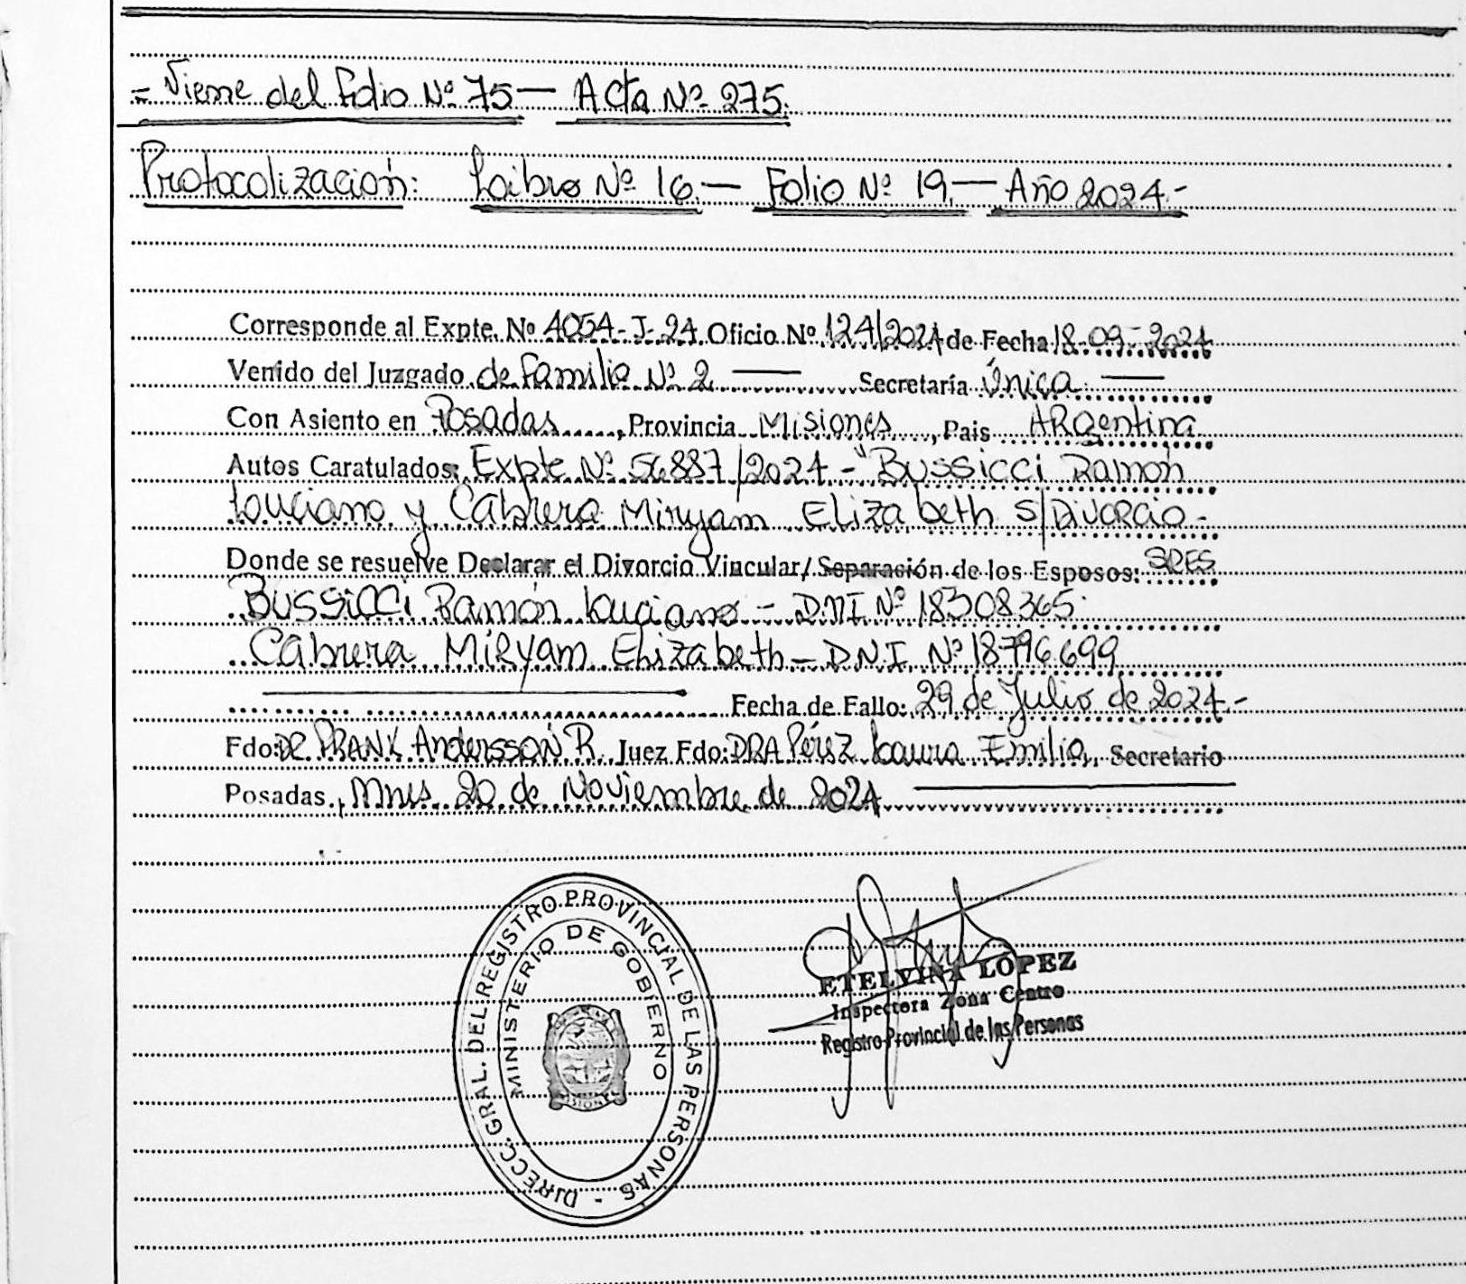 = Viene del Folio Nº 75 — Acta Nº 275.
Protocolización: Libro Nº 16.— Folio Nº 19.— Año 2024.-
Corresponde al Expte. Nº 4054-J-24. Oficio Nº 124/2024 de Fecha 18-09-2024
Venido del Juzgado de Familia Nº 2 — Secretaría Única —
Con Asiento en Posadas, Provincia Misiones, Pais Argentina
Autos Caratulados: Expte Nº 56887/2024 - "Bussicci Ramón
Luciano y Cabrera Miryam Elizabeth S/Divorcio -
Donde se resuelve Declarar el Divorcio Vincular/ Separación de los Esposos: SRES
BUSSICCI Ramón Luciano - D.N.I Nº 18308365.
Cabrera Miryam Elizabeth - D.N.I. Nº 18796699
Fecha de Fallo: 29 de Julio de 2024.-
Fdo: DR PRANK Andersson R. Juez Fdo: DRA Pérez Laura Emilia, Secretario
Posadas, Mnes 20 de Noviembre de 2024
DIRECC. GRAL. DEL REGISTRO PROVINCIAL DE LAS PERSONAS -
MINISTERIO DE GOBIERNO
MISIONES
ETELVINA LÓPEZ
Inspectora Zona Centro
Registro Provincial de las Personas